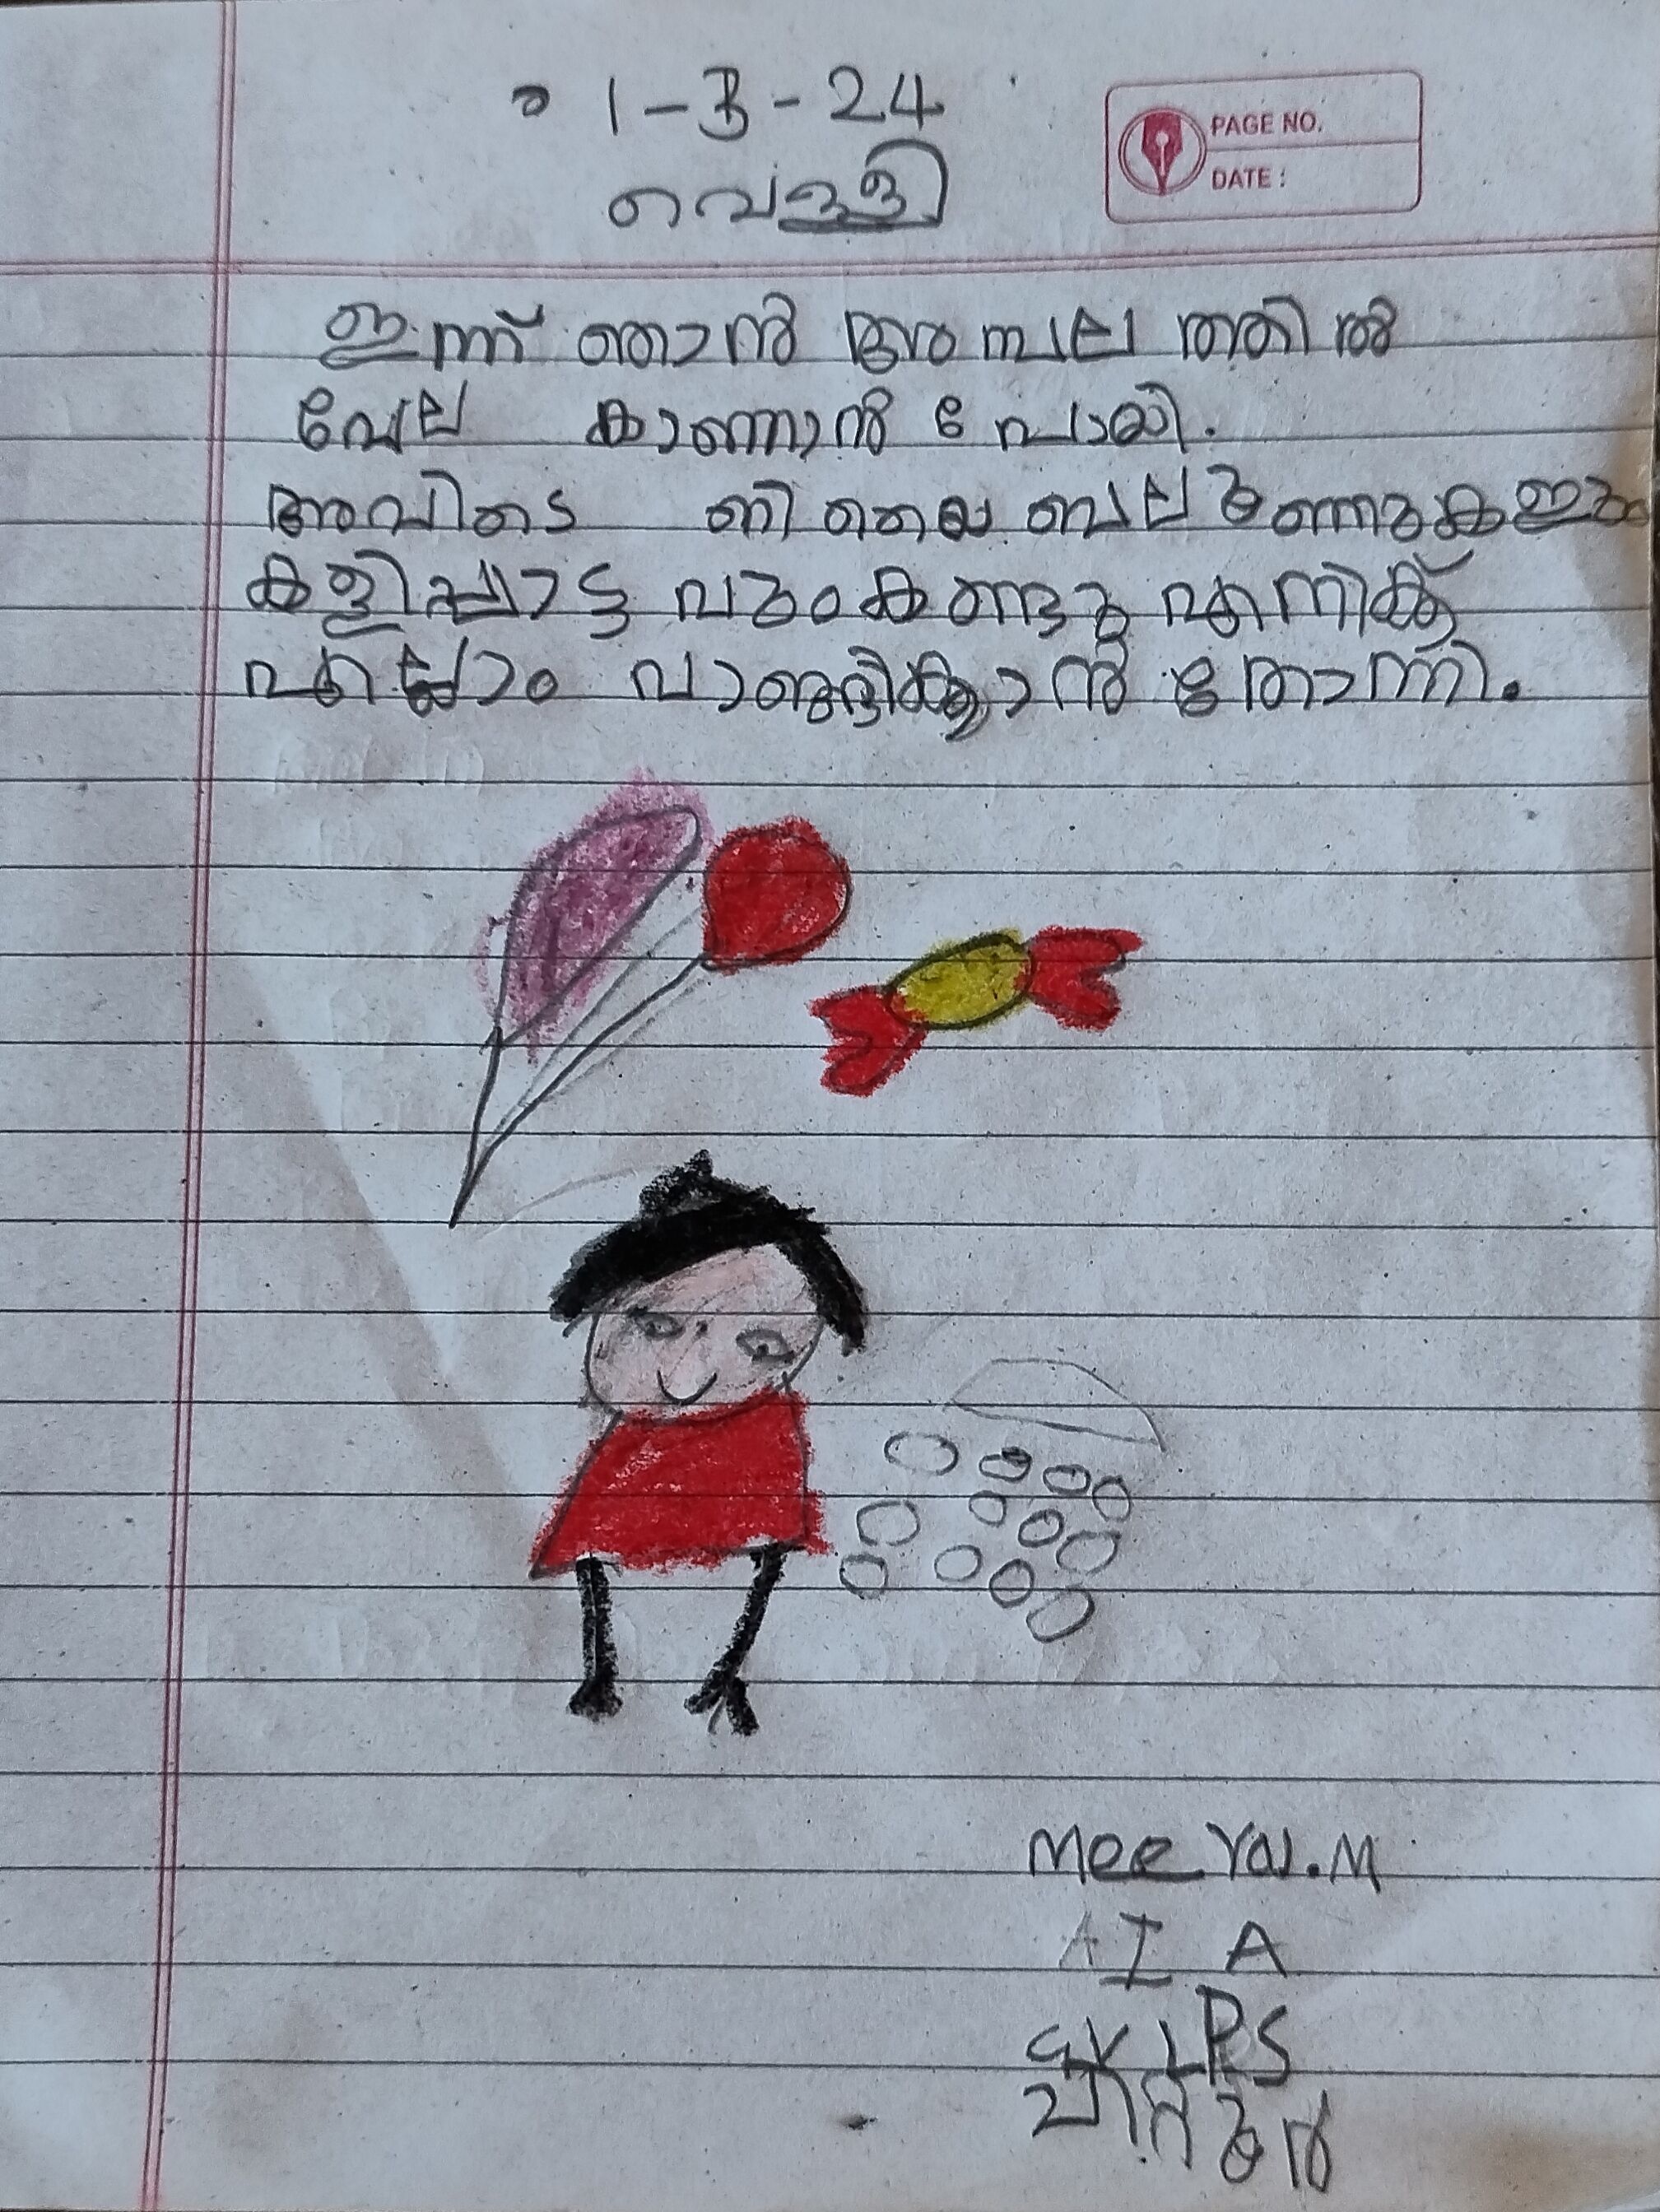 1-3-24
PAGE NO.
DATE :
വെള്ളി
ഇന്ന് ഞാൻ അമ്പലത്തിൽ
വേല കാണാൻ പോയി.
അവിടെ നിറയെ ബലൂണുകളും
കളിപ്പാട്ടവുംകണ്ടു എനിക്ക്
എല്ലാം വാങ്ങിക്കാൻ തോന്നി.
Meera.M
I A
GVLPS
ചിറ്റൂർ